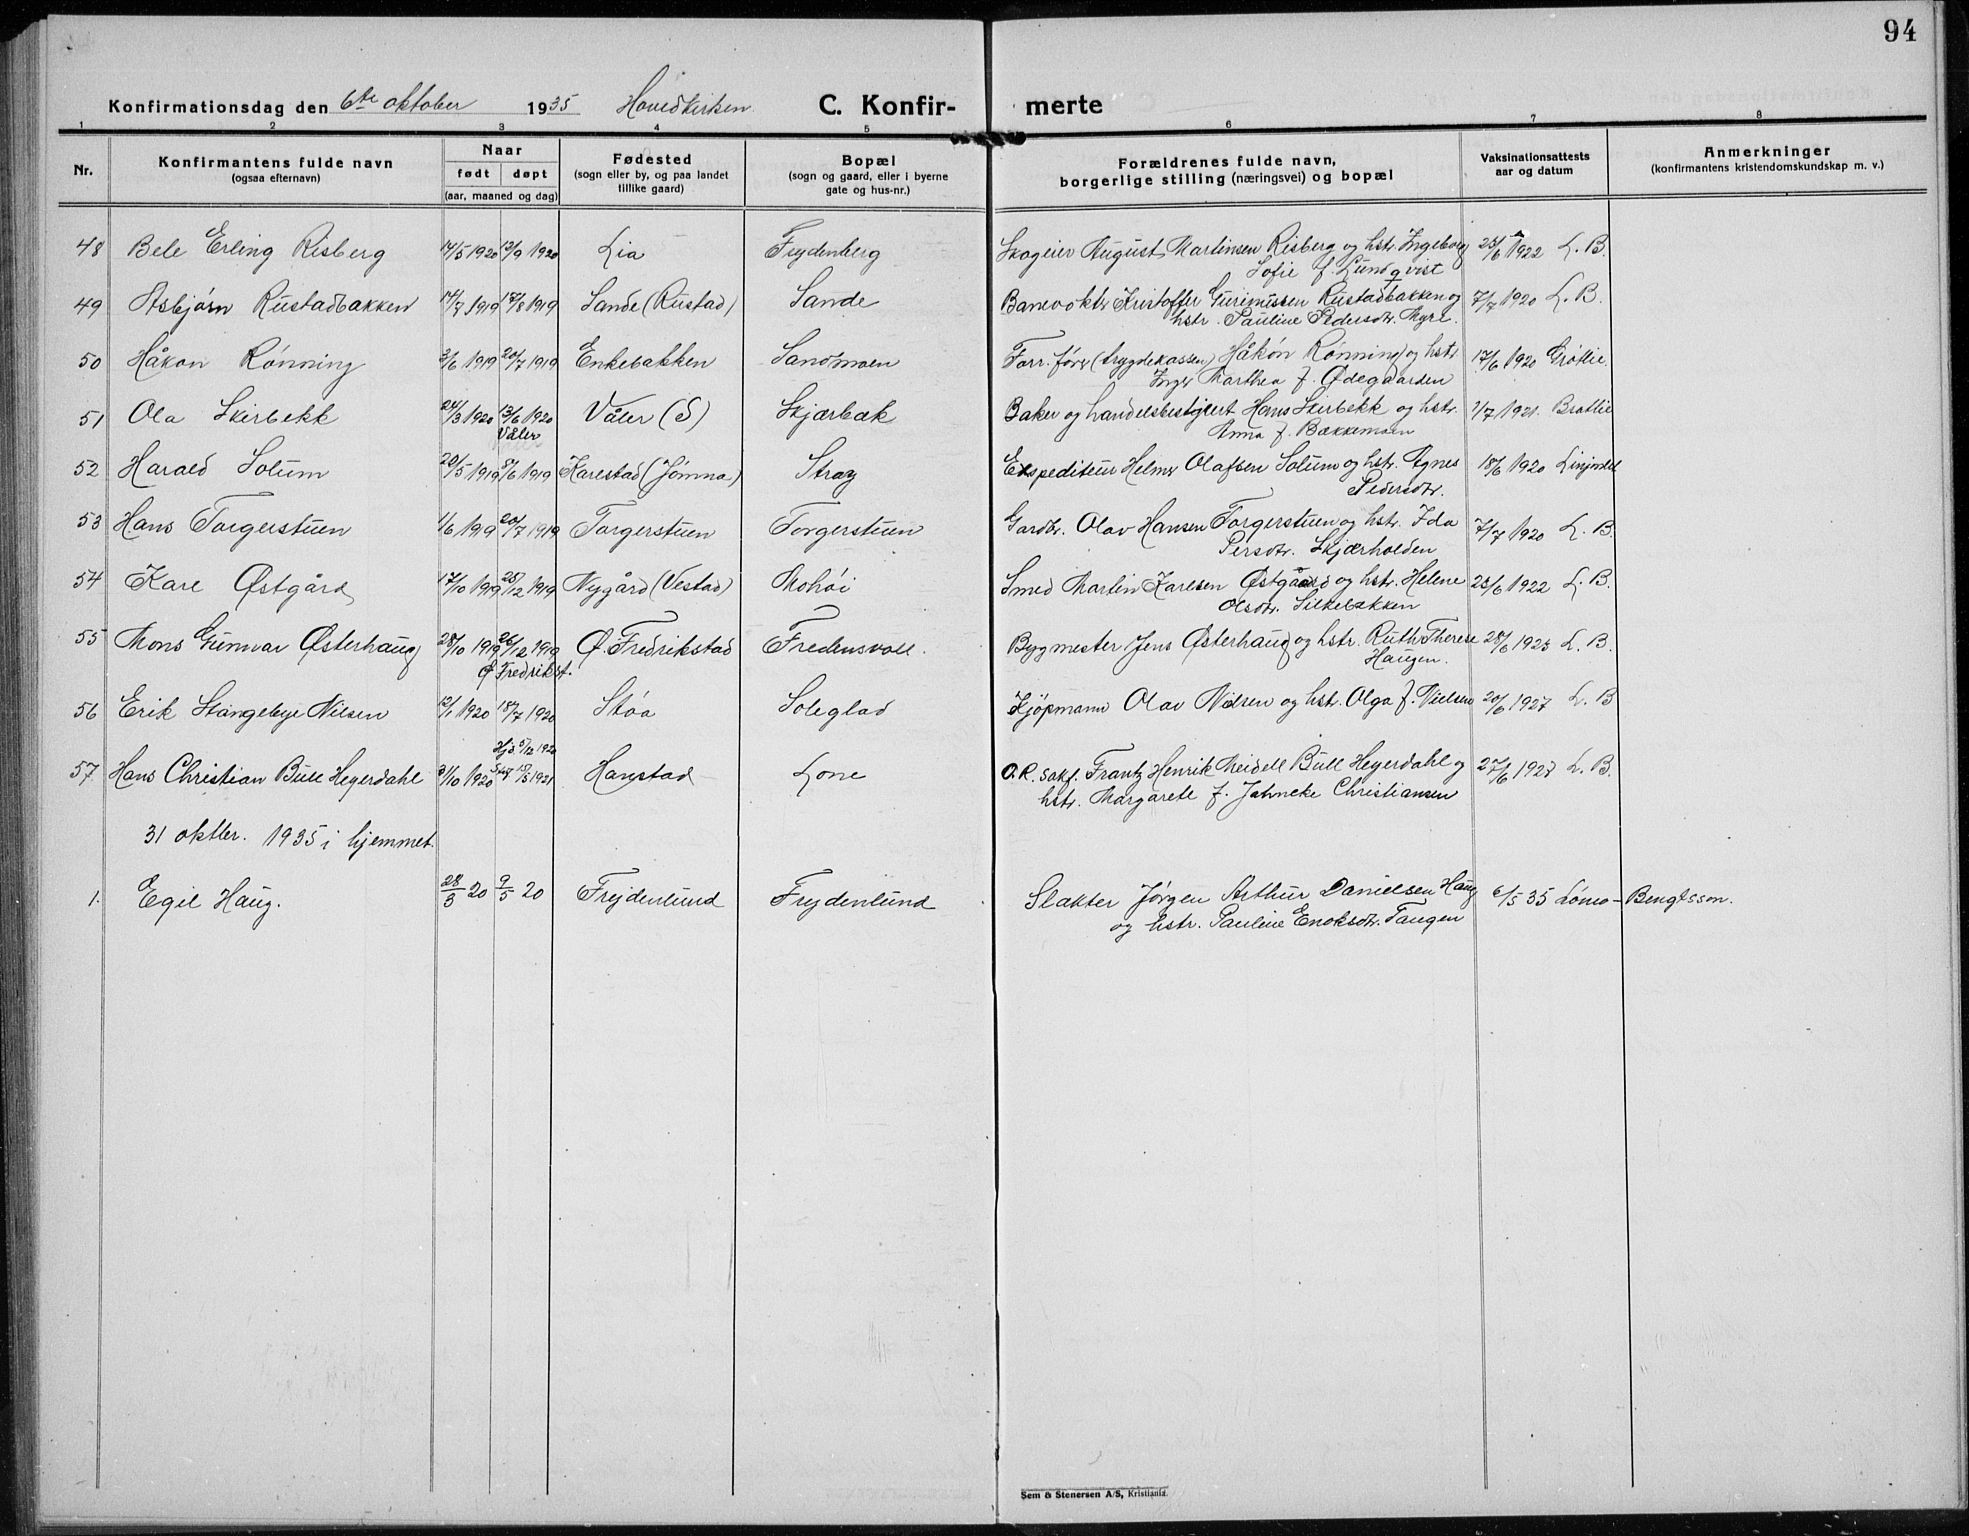 94
Konfirmationsdag den 6te oktober 1935 Hovedkirken C. Konfirmerte
1 2 3 4 5 6 7 8
Nr. Konfirmantens fulde navn (ogsaa efternavn) Naar født døpt (aar, maaned og dag) Fødested (sogn eller by, og paa landet tillike gaard) Bopæl (sogn og gaard, eller i byerne gate og hus-nr.) Forældrenes fulde navn, borgerlige stilling (næringsvei) og bopæl Vaksinationsattests aar og datum Anmerkninger (konfirmantens kristendomskundskap m. v.)
48 Bele Erling Risberg 14/5 1920 12/9 1920 Lia Frydenberg Skogeier August Martinsen Risberg og hstr. Ingeborg 23/6 1922 L. B.
Sofie f. Lundqvist
49 Asbjørn Rustadbakken 14/7 1919 17/8 1919 Sande (Rustad) Sande Banevokter Kristoffer Rustadbakken og 7/7 1920 L. B.
hstr. Pauline Pedersdtr. Myre.
50 Håkon Rønning 3/6 1919 20/7 1919 Enkebakken Sandmoen Forr. fører (trygdekassen) Håkon Rønning og hstr. 17/6 1920 Grøtlie.
Inger Marthea f. Ødegaarden
51 Ola Skirbekk 24/3 1920 13/6 1920 Våler (S) Skjærbæk Baker og handelsbestyrer Hans Skirbekk og hstr. 1/7 1921. Brotlie
Våler Anna f. Bakkemoen
52 Harald Solum 20/5 1919 5/6 1919 Karestad (Jømna) Stray Ekspeditør Helmer Olafsen Solum og hstr. Agnes 18/6 1920 Linjordet
Pedersdtr.
53 Hans Torgerstuen 1/6 1919 20/7 1919 Torgerstuen Torgerstuen Gardbr. Olav Hansen Torgerstuen og hstr. Ida 7/7 1920 L. B.
Persdtr. Skjærholden
54 Kare Østgård 17/10 1919 25/12 1919 Nygård (Vestad) Mohøi Smed Martin Karlsen Østgård og hstr. Helene 23/6 1922 L. B.
Olsdtr. Silkebækken
55 Mons Gunnar Østerhaug 28/10 1919 26/12 1919 Ø. Fredrikstad Fredensvoll. Bygmester Jens Østerhaug og hstr. Ruth Therese 28/6 1923 L. B.
Ø Fredrikst. Haugen.
56 Erik Stangebye Nilsen 12/1 1920 18/7 1920 Støa Soleglad Kjøpmann Olav Nilsen og hstr. Olga f. Nielsen 20/6 1927 L. B
Hjd. 5/12 1920
57 Hans Christian Bull Heyerdahl 31/10 1920 15/5 1921 Hanstad Lone O.R. sakf. Frantz Henrik Meidell Bull Heyerdahl og 27/6 1927 L. B.
hstr. Margarete f. Jahncke Christiansen
31 oktber. 1935 i hjemmet.
1. Egil Haug. 28/3 20 9/5 20 Frydenlund Frydenlund Slakter Jørgen Arthur Danielsen Haug 6/5 35 Lømo-Bengtsson.
og hstr. Pauline Enoksdtr. Taugen
Sem & Stenersen A/S, Kristiania.